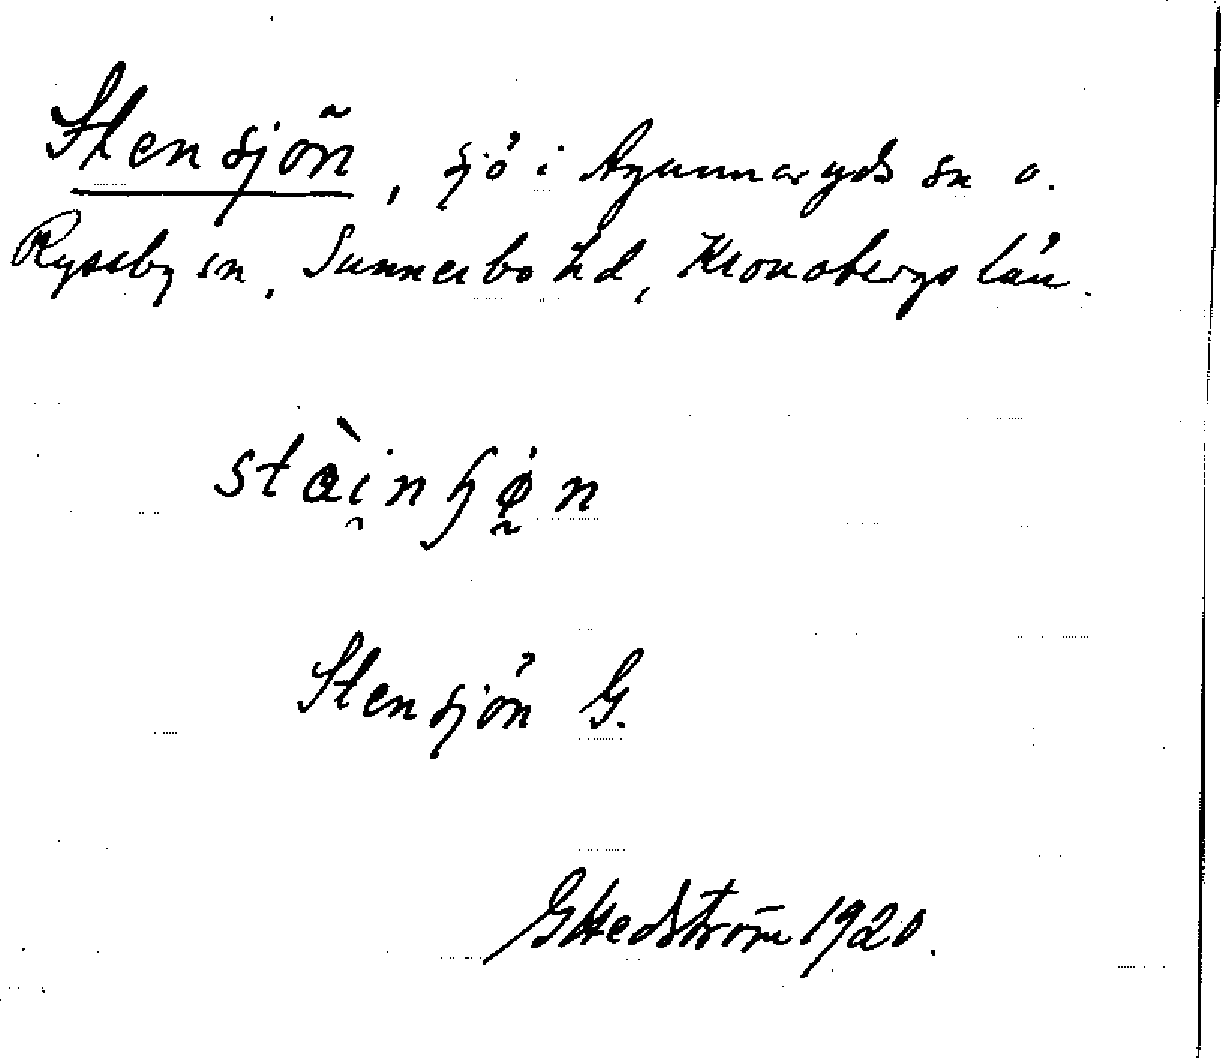 Stensjön, sjö i Agunnaryds sn o.
Ryssby sn, Sunnerbo hd, Kronobergs län.
stàinɧøn
Stensjön G.
G Hedström 1920.